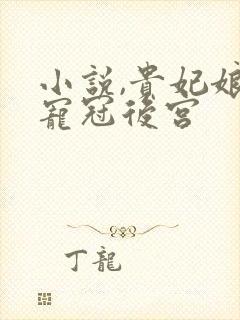 小説,貴妃娘
寵冠後宮
丁龍